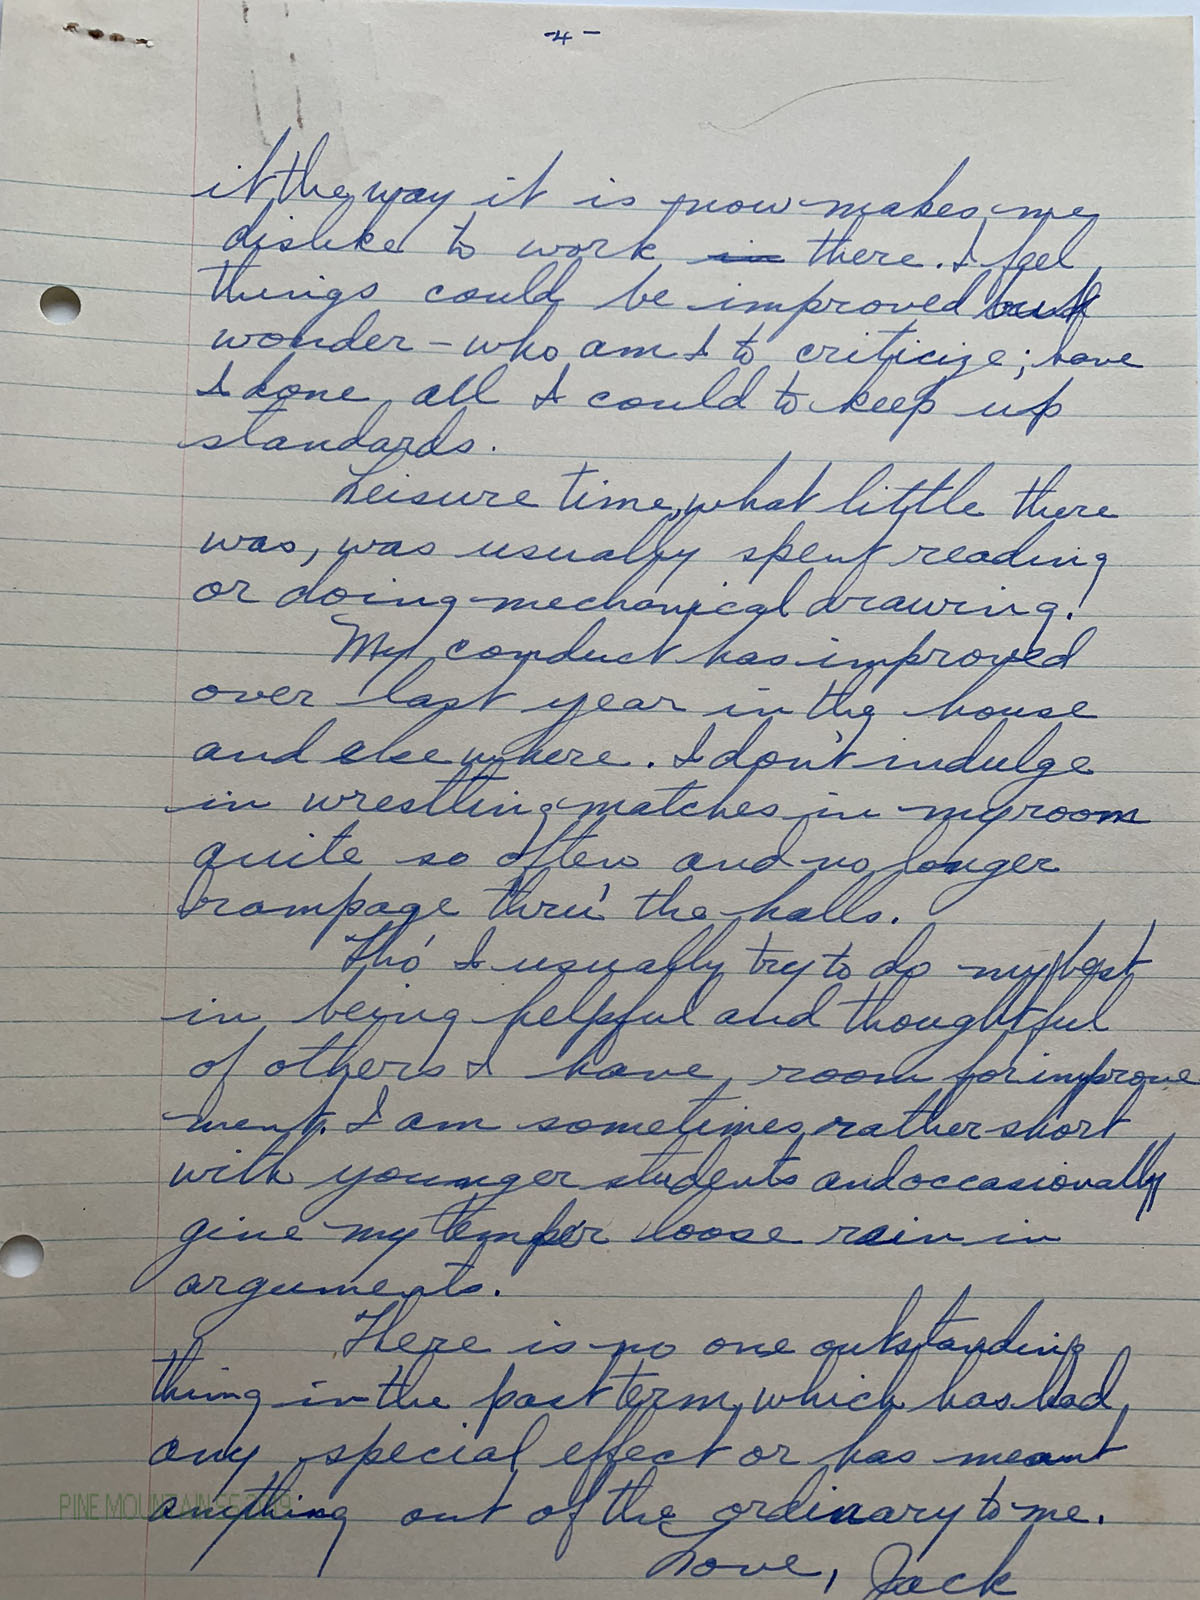 -4-
it the way it is now makes me
dislike to work in there. I feel
things could be improved but
wonder - who am I to criticize; have
I done all I could to keep up
standards.
Leisure time, what little there
was, was usually spent reading
or doing mechanical drawing.
My conduct has improved
over last year in the house
and elsewhere. I don't indulge
in wrestling matches in my room
quite so often and no longer
rampage thru' the halls.
Tho' I usually try to do my best
in being helpful and thoughtful
of others I have room for improve
ment. I am sometimes rather short
with younger students and occasionally
give my temper loose rein in
arguments.
There is no one outstanding
thing in the past term which has had
any special effect or has meant
PINE MOUNTAIN SS 2019
anything out of the ordinary to me.
Love, Jack